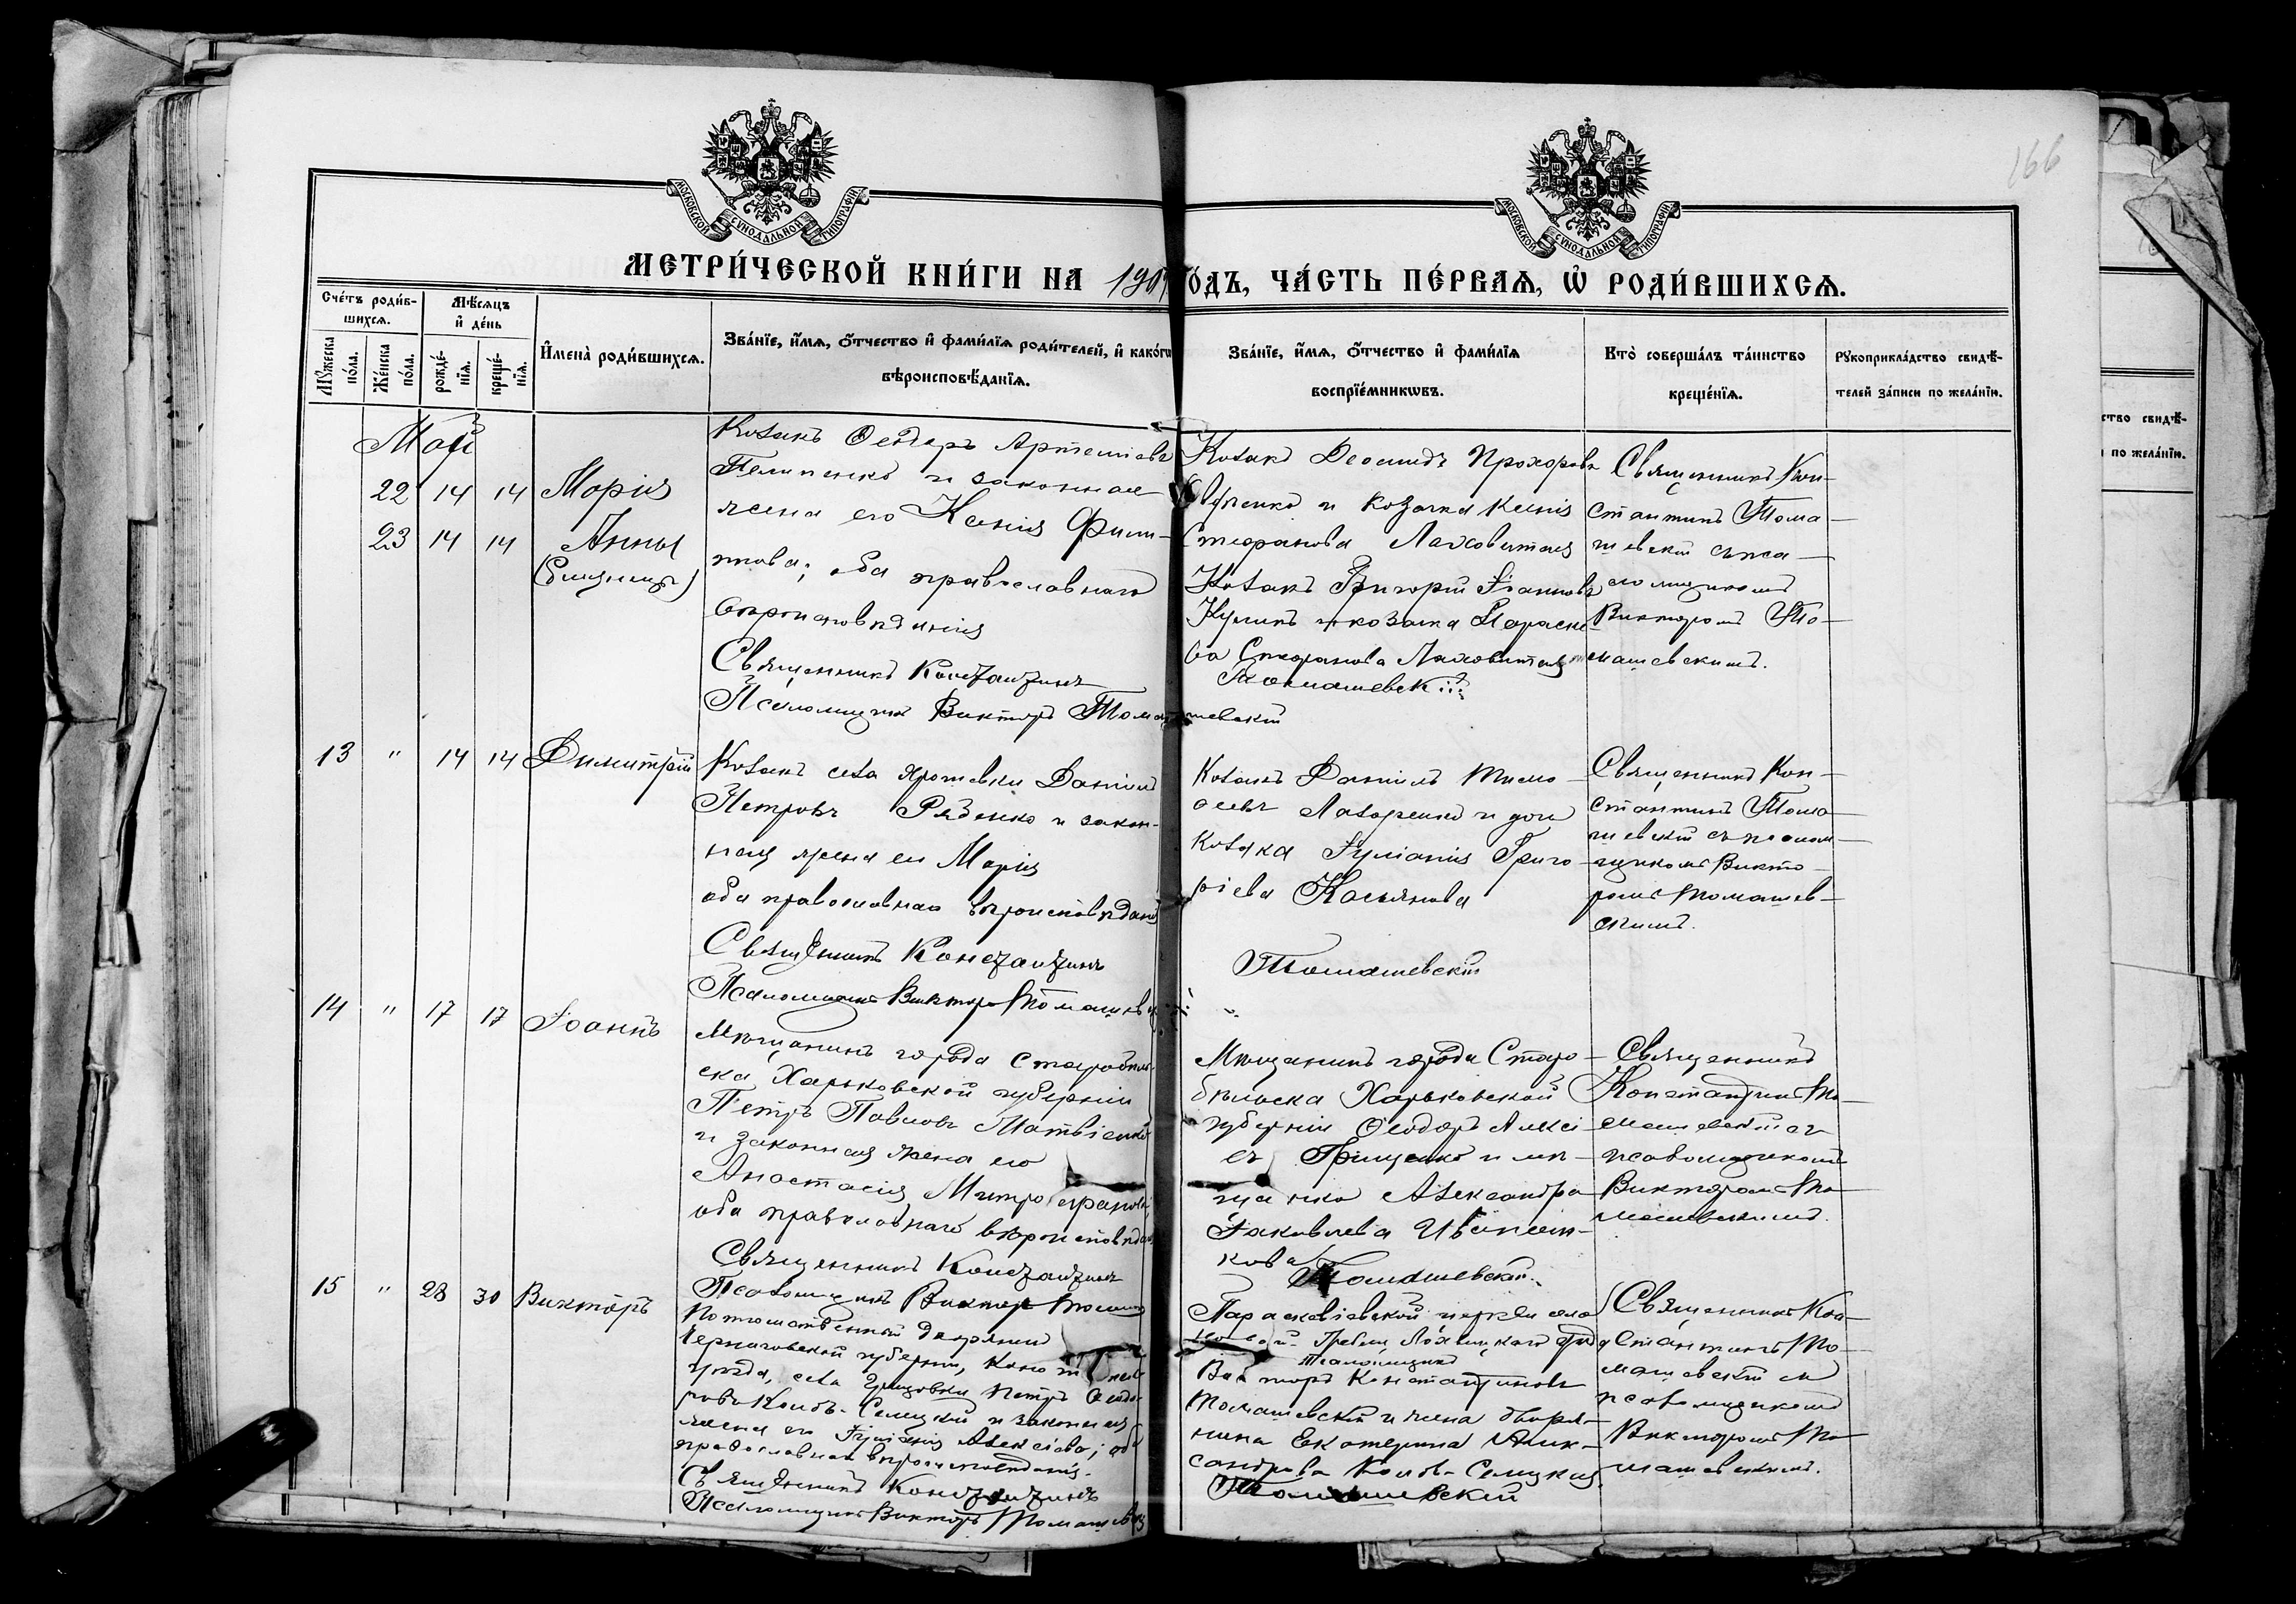 166
МОСКОВСКОЙ СѴНОДАЛЬНОЙ ТИПОГРАФІИ
МОСКОВСКОЙ СѴНОДАЛЬНОЙ ТИПОГРАФІИ
МЕТРИ́ЧЕСКОЙ КНИ́ГИ НА 190 ГО́ДЪ, ЧА́СТЬ ПЕ́РВАѦ, Ѽ РОДИ́ВШИХСѦ.
Сче́тъ роди́в-
шихсѧ.
Мѣ́сяцъ
и҆ де́нь
Мꙋ́жеска
по́ла.
Же́нска
по́ла.
рожде́-
нїѧ.
креще́-
нїѧ.
И҆мена̀ роди́вшихсѧ.
Зва́нїе, и҆́мѧ, ѻ҆́тчество и҆ фами́лїѧ роди́телей, и҆ како́гѡ
вѣроисповѣ́данїѧ.
Зва́нїе, и҆́мѧ, ѻ҆́тчество и҆ фами́лїѧ
воспрїе́мникѡвъ.
Кто̀ соверша́лъ та́инство
креще́нїѧ.
Рꙋкоприкла́дство свидѣ́-
телей за́писи по жела́нїю.
Май
22 14 14 Марія
23 14 14 Анны
(близнецы)
Козакъ Ѳеодоръ Артеміевъ
Пелипенко и законная
жена его Ксенія Филип-
пова; оба православнаго
вѣроисповѣданія
Священникъ Константинъ
Псаломщикъ Викторъ Томашевскій
Козакъ Прохоровъ
и козачка Ксенія
Стефанова
Козакъ Григорій Іоанновъ
Куликъ и козачка Параске-
ва Стефанова
Томашевскій
Священникъ Кон-
стантинъ Тома-
шевскій съ пса-
ломщикомъ
Викторомъ То-
машевскимъ.
13 " 14 14 Димитрій
Козакъ села Даніилъ
Петровъ Рѣзенко и закон-
ная жена его Марія
оба православнаго вѣроисповѣданія
Священникъ Константинъ
Псаломщикъ Викторъ Томашевскій
Козакъ Даніилъ Тимо-
ѳеевъ Лазоренко и дочь
козака Іуліанія Григо-
ріева Касьянова
Томашевскій
Священникъ Кон-
стантинъ Тома-
шевскій съ псалом-
щикомъ Викто-
ромъ Томашев-
скимъ.
14 " 17 17 Іоаннъ
Мѣщанинъ города Старобѣль-
ска Харьковской губерніи
Петръ Павловъ Матвіенко
и законная жена его
Анастасія Митрофанова,
оба православнаго вѣроисповѣданія
Священникъ Константинъ
Псаломщикъ Викторъ
Мѣщанинъ города Старо-
бѣльска Харьковской
губерніи Ѳеодоръ Алексі-
евъ Грищенко и мѣ-
щанка Александра
Іаковлева Иванни-
кова
Томашевскій.
Священникъ
Константинъ То-
машевскій съ
псаломщикомъ
Викторомъ То-
машевскимъ.
15 " 28 30 Викторъ
Потомственный дворянинъ
Черниговской губерніи,
уѣзда, села Петръ Ѳеодо-
ровъ Селецкій и законная
жена его Іуліанія Алексіева; оба
православнаго вѣроисповѣданія.
Священникъ Константинъ
Псаломщикъ Викторъ Томашевскій
Параскевіевской церкви села
Гребли Лохвицкаго
Псаломщикъ
Викторъ Константиновъ
Томашевскій и жена дворя-
нина Екатерина Алек-
сандрова Селецкая
Томашевскій
Священникъ Кон-
стантинъ То-
машевскій съ
псаломщикомъ
Викторомъ То-
машевскимъ.
ство свидѣ́-
по жела́нїю.